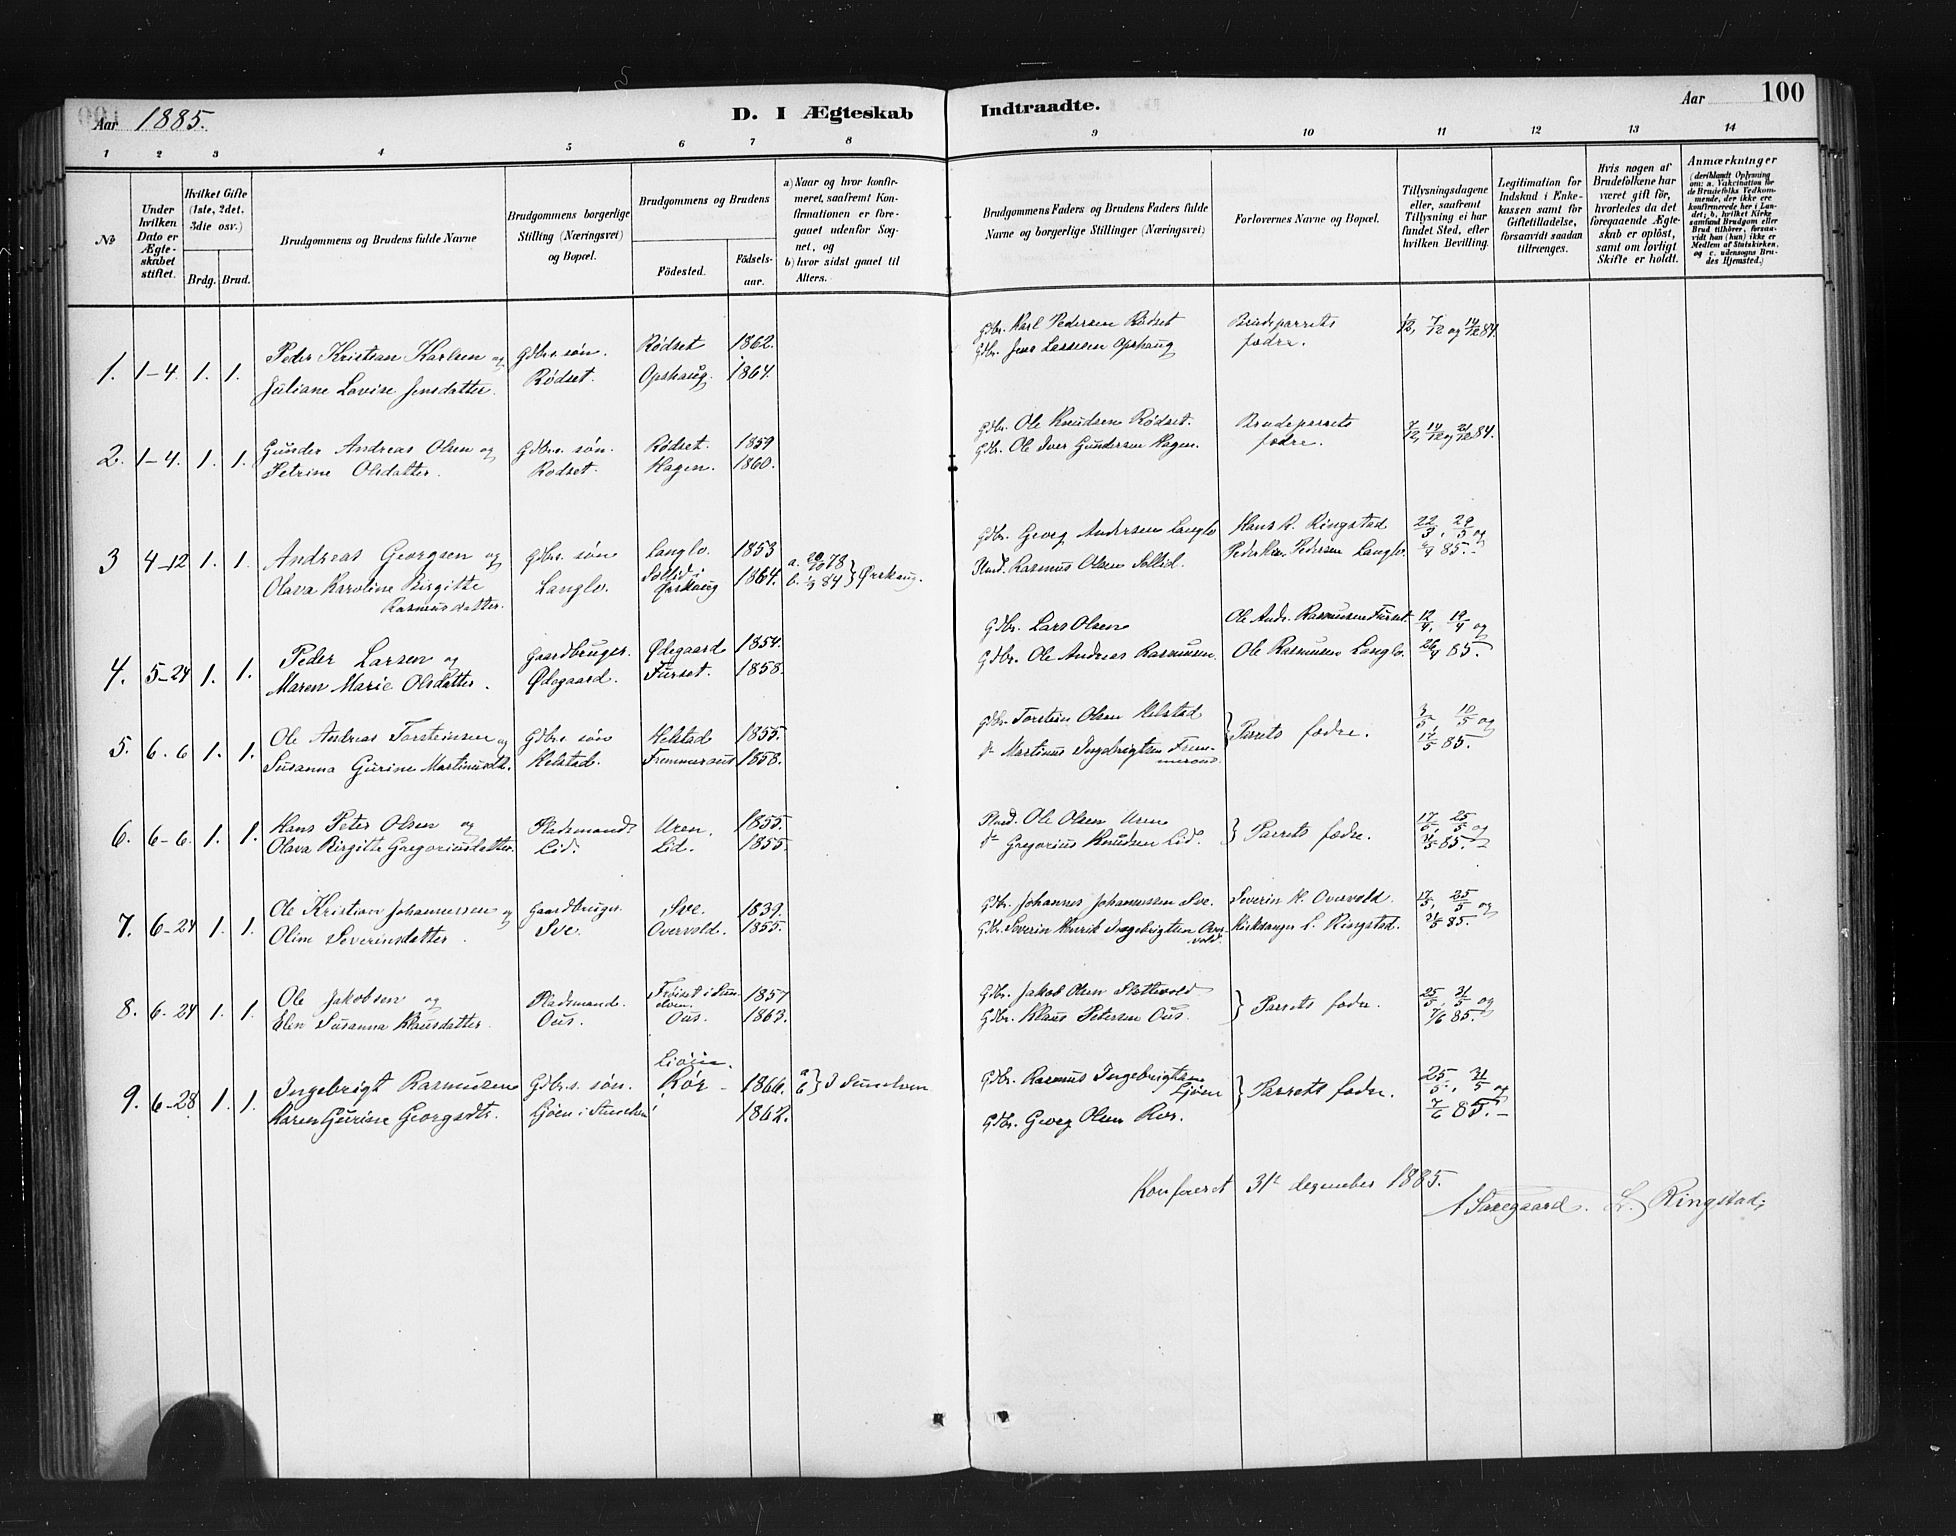 100
Aar 1885.
D. I Ægteskab Indtraadte.
Aar 100
1 2 3 4 5 6 7 8 9 10 11 12 13 14
№
Under hvilken Dato er Ægteskabet stiftet.
Hvilket Gifte (1ste, 2det, 3die osv.)
Brdg. Brud.
Brudgommens og Brudens fulde Navne
Brudgommens borgerlige Stilling (Næringsvei) og Bopæl.
Brudgommens og Brudens
Fødested. Fødselsaar.
a) Naar og hvor konfirmeret, saafremt Konfirmationen er foregaaet udenfor Sognet, og
b) hvor sidst gaaet til Alters.
Brudgommens Faders og Brudens Faders fulde Navne og borgerlige Stillinger (Næringsvei)
Forlovernes Navne og Bopæl.
Tillysningsdagene eller, saafremt Tillysning ei har fundet Sted, efter hvilken Bevilling.
Legitimation for Indskud i Enkekassen samt for Giftetilladelse, forsaavidt saadan tiltrænges.
Hvis nogen af Brudefolkene har været gift før, hvorledes da det foregaaende Ægteskab er opløst, samt om lovligt Skifte er holdt.
Anmærkninger (deriblandt Oplysning om: a. Vakcination for de Brudefolks Vedkommende, der ikke ere konfirmerede her i Landet; b. hvilket Kirkesamfund Brudgom eller Brud tilhører, forsaavidt han (hun) ikke er Medlem af Statskirken, og c. udensogns Brudes Hjemsted.)
1. 1-4. 1. 1. Peder Kristian Karlsen og Gdbrs. søn. Rødset 1862. Gdbr. Karl Pedersen Rødset Brudeparrets
Juliane Lovise Jensdatter. Rødset. Opshaug. 1864. Gdbr. Jens Lassesen Opshaug fædre. 7/12 og 14/12 84.
2. 1-4. 1. 1. Gunder Andreas Olsen og Gdbrs. søn. Rødset. 1859 Gdbr. Ole Knudsen Rødset. Brudeparrets
Petrine Olsdatter. Rødset. Hagen. 1860. Gdbr. Ole Iver Gundersen Hagen. fædre. 7/12, 14/12 og 21/12 84.
3 4-12 1. 1. Andreas Georgsen og Gdbrs. søn Langlo. 1853 Gdbr. Georg Andersen Langlo Hans K. Ringstad 22/3, 29/3 og
Olava Karoline Birgitte Langlo. Sollid i Ørskaug 1864. a. 78 b. 84 } Ørskaug. Rasmus Olsen Sollid. Pedersen Langlo. 85.-
Rasmusdatter.
4. 5-24 1. 1. Peder Larsen og Gaardbruger. Ødegaard 1854. Gdbr. Lars Olsen Ole Andr. Rasmussen Furset 12/4, 19/4 og
Maren Marie Olsdatter. Ødegaard. Furset. 1858. Gdbr. Ole Andreas Rasmussen. Ole Rasmussen Langlo. 26/4 85.
5. 6-6 1. 1. Ole Andreas Torsteinsen og Gdbrs. søn Helstad 1855. Gdbr. Torstein Olsen Helstad } Parrets fædre. 3/5, 10/5 og
Susanna Gurine Martinusdt. Helstad. 1858. Martinus Ingebrigtsen 17/5 85.
6. 6-6. 1. 1. Hans Peter Olsen og Pladsmand. Uren. 1855. Ole Olsen Uren } Parrets fædre. 17/5, 25/5 og
Olava Birgitte Gregoriusdatter. Lid. Lid. 1855. Gregorius Knudsen Lid. 31/5 85.-
7. 6-24 1. 1. Ole Kristian Johannessen og Gaardbruger Sve. 1839. Gdbr. Johannes Johannessen Sve. Severin H. Overvold. 17/5, 25/5 og
Oline Severinsdatter. Sve. Overvold. 1855. Gdbr. Severin Henrik Ingebrigtsen Overvold. Kirksanger L. Ringstad. 31/5 85.
8. 6-24 1. 1. Ole Jakobsen og Pladsmand. 1857 Gdbr. Jakob Olsen } Parrets fædre. 25/5, 31/5 og
Elen Susanna Klausdatter. Ous. Ous. 1863. Gdbr. Klaus Petersen Ous. 7/6 85.
9. 6-28 1. 1. Ingebrigt Rasmussen Gdbrs. søn. Ljøen. 1866. a b } I Sunelven Gdbr. Rasmus Ingebrigtsen Ljøen } Parrets fædre. 25/5, 31/5 og
Karen Gurine Georgsdtr. Ljøen i Sunelven Rør 1862. Gdbr. Georg Olsen Rør. 7/6 85.-
Konfereret 31te dezember 1885.
L. Ringstad.